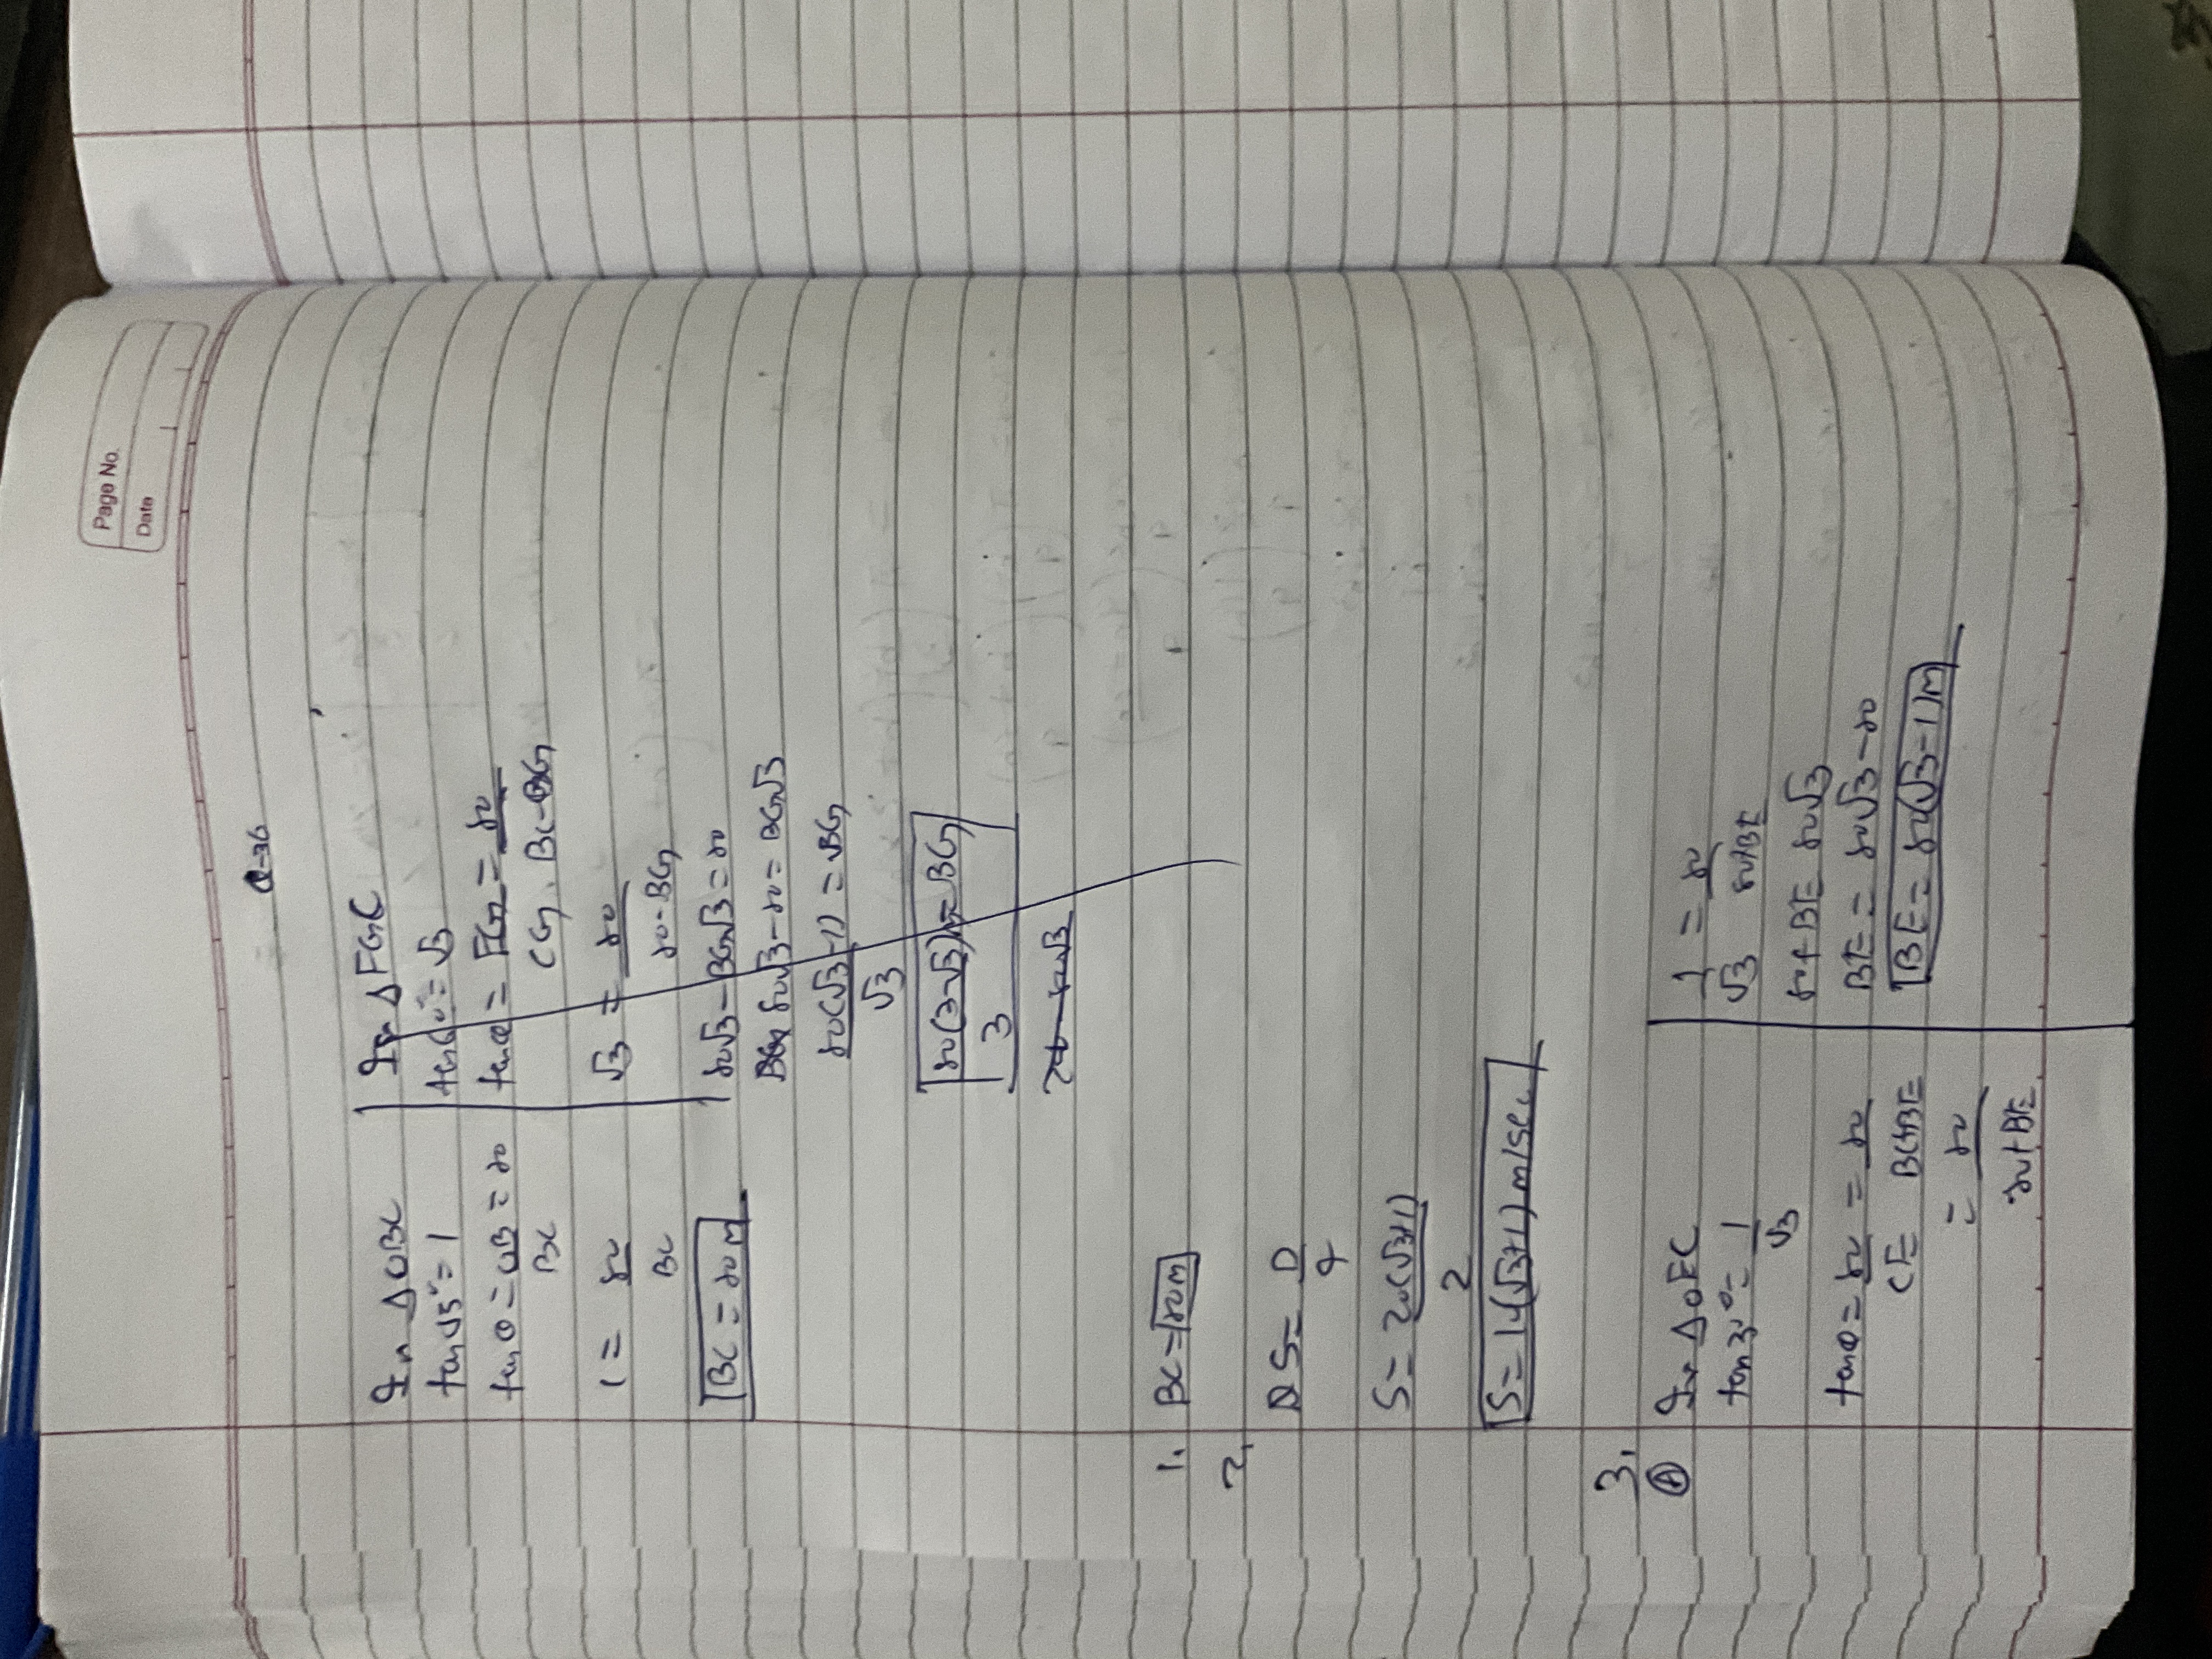 Page No.
Date
Q-36
In Δ OBC
tan 45° = 1
tan θ = OB = 80
BC
1 = 80
BC
BC = 80 M
In Δ FGC
tan 60° = √3
tan θ = FG = 80
CG, BC-BG
√3 = 80
80-BG
80√3 - BG√3 = 80
80√3 - 80 = BG√3
80(√3-1) = BG
√3
80(3-√3) = BG
3
1. BC = 80M
2.
S = D
S = 20(√3+1)
2
S = 14(√3+1) m/sec
3.
A In Δ OEC
tan 30° = 1
√3
tan θ = 80 = 80
CE BC+BE
= 80
80+BE
1 = 80
√3 80+BE
80+BE = 80√3
BE = 80√3-80
BE = 80(√3-1)M